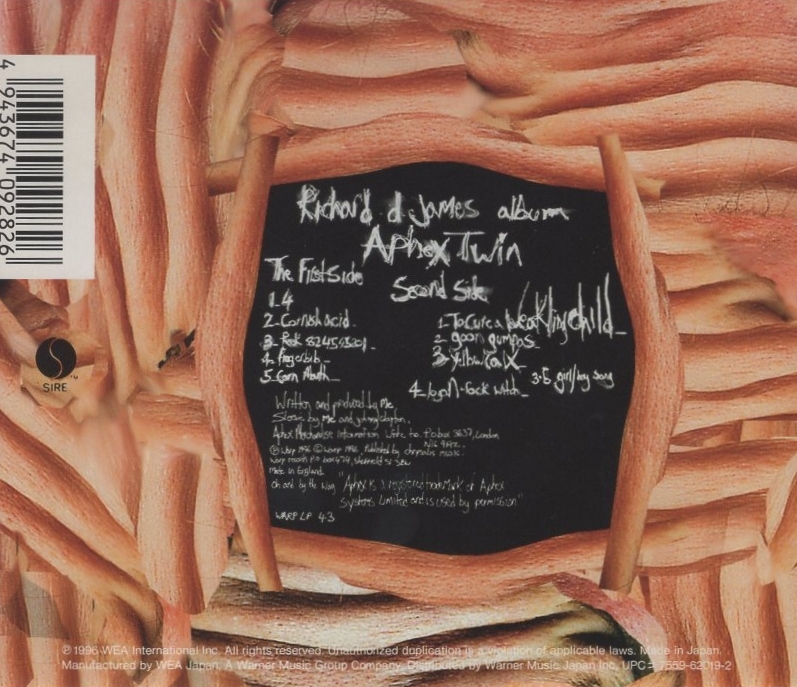 4 943674 092826
SIRE
Richard d James album
Aphex Twin
The First Side
1. 4
2_ Cornish acid_
3_ Peek 824545201_
4_ fingerbib_
5_ Corn Mouth_
Second Side
1_ To Cure a Weakling child_
2_ goon gumpas_
3_ Yellow Calx_
3.5 girl/boy song
4_ logon-rock witch_
Written and produced by Me
Sleeve by me and johnny clayton.
Aphex Merchandise information Write to. P.o box 3637, London
N16
Ⓟ Warp 1996 © Warp 1996, Published by chrysalis music.
Warp records P.o box 474, sheffield
Made in England.
Oh and by the Way "Aphex is a registered trademark of Aphex
Systems Limited and is used by permission"
WARP LP 43
℗ 1996 WEA International Inc. All rights reserved. Unauthorized duplication is a violation of applicable laws. Made in Japan.
Manufactured by WEA Japan, A Warner Music Group Company. Distributed by Warner Music Japan Inc. UPC= 7559-62019-2